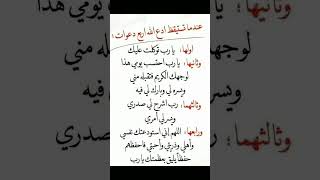 عندما تستيقظ ادع الله اربع دعوات :
اولها : يا رب توكلت عليك
وثانيها : يا رب احتسب يومي هذا
لوجهك الكريم فتقبله مني
ويسره لي وبارك لي فيه
وثالثهما : رب اشرح لي صدري
ويسر لي أمري
ورابعها : اللهم إني استودعتك نفسي
وأهلي وذريتي وأحبتي فاحفظهم
حفظاً يليق بعظمتك يا رب